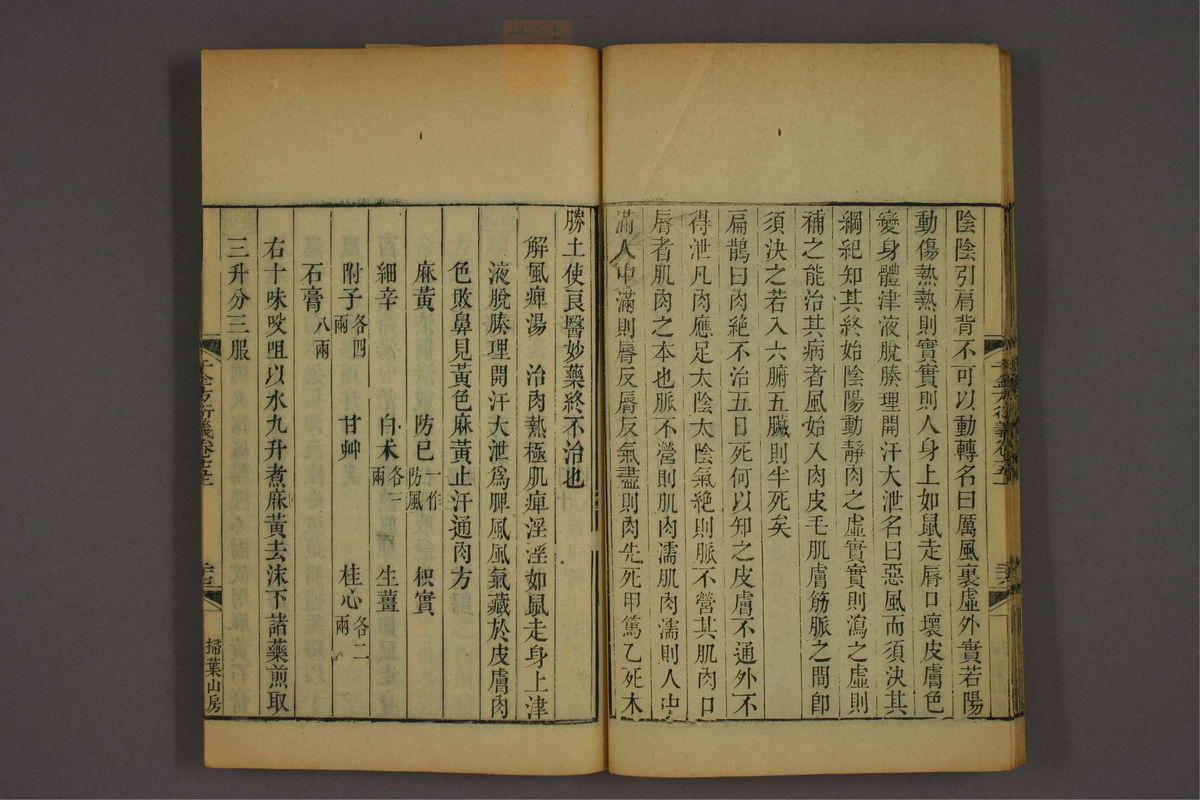 陰陰引肩背不可以動轉名曰厲風裏虛外實若陽
動傷熱熱則實實則人身上如鼠走脣口壞皮膚色
變身體津液脫腠理開汗大泄名曰惡風而須決其
綱紀知其終始陰陽動靜肉之虛實實則瀉之虛則
補之能治其病者風始入肉皮毛肌膚筋脈之間卽
須決之若入六腑五臟則半死矣
扁鵲曰肉絕不治五日死何以知之皮膚不通外不
得泄凡肉應足太陰太陰氣絕則脈不營其肌肉口
脣者肌肉之本也脈不營則肌肉濡肌肉濡則人中
滿人中滿則脣反脣反氣盡則肉先死甲篤乙死木
勝土使良醫妙藥終不治也
解風痺湯 治肉熱極肌痺淫淫如鼠走身上津
液脫腠理開汗大泄爲脾風風氣藏於皮膚肉
色敗鼻見黃色麻黃止汗通肉方
麻黃 防已一作防風 枳實
細辛 白朮各三兩 生薑
附子各四兩 甘艸 桂心各二兩
石膏八兩
右十味㕮咀以水九升煮麻黃去沫下諸藥煎取
三升分三服
千金方衍義卷十五
掃葉山房